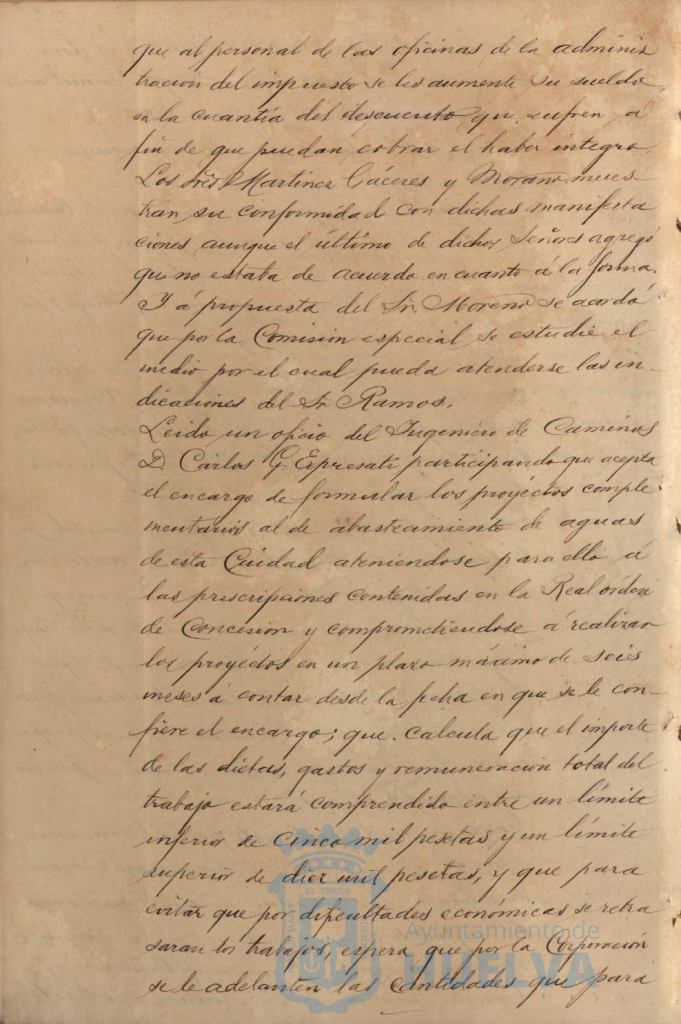 que al personal de las oficinas de la adminis
tración del impuesto se les aumente su sueldo,
en la cuantía del descuento que sufren á
fin de que puedan cobrar el haber integro.
Los Sres Martinez Cáceres y Morano mues
tran su conformidad con dichas manifesta
ciones aunque el último de dichos Señores agregó
que no estaba de acuerdo en cuanto á la forma.
Y á propuesta del Sr. Moreno se acordó
que por la Comisión especial se estudie el
medio por el cual pueda atenderse las in-
dicaciones del Sr Ramos.
Leido un oficio del Ingeniero de Caminos
D. Carlos G. Espresati participando que acepta
el encargo de formular los proyectos comple
mentarios al de abastecimiento de aguas
de esta Ciudad ateniendose para ello á
las prescripciones contenidas en la Real orden
de Concesión y comprometiendose á realizar
los proyectos en un plazo máximo de seis
meses á contar desde la fecha en que se le con-
fiere el encargo; que calcula que el importe
de las dietas, gastos y remuneracion total del
trabajo estará comprendido entre un límite
inferior de cinco mil pesetas y un límite
superior de diez mil pesetas, y que para
evitar que por dificultades económicas se retra
saran los trabajos, espera que por la Corporación
se le adelanten las cantidades que para
Ayuntamiento de
HUELVA